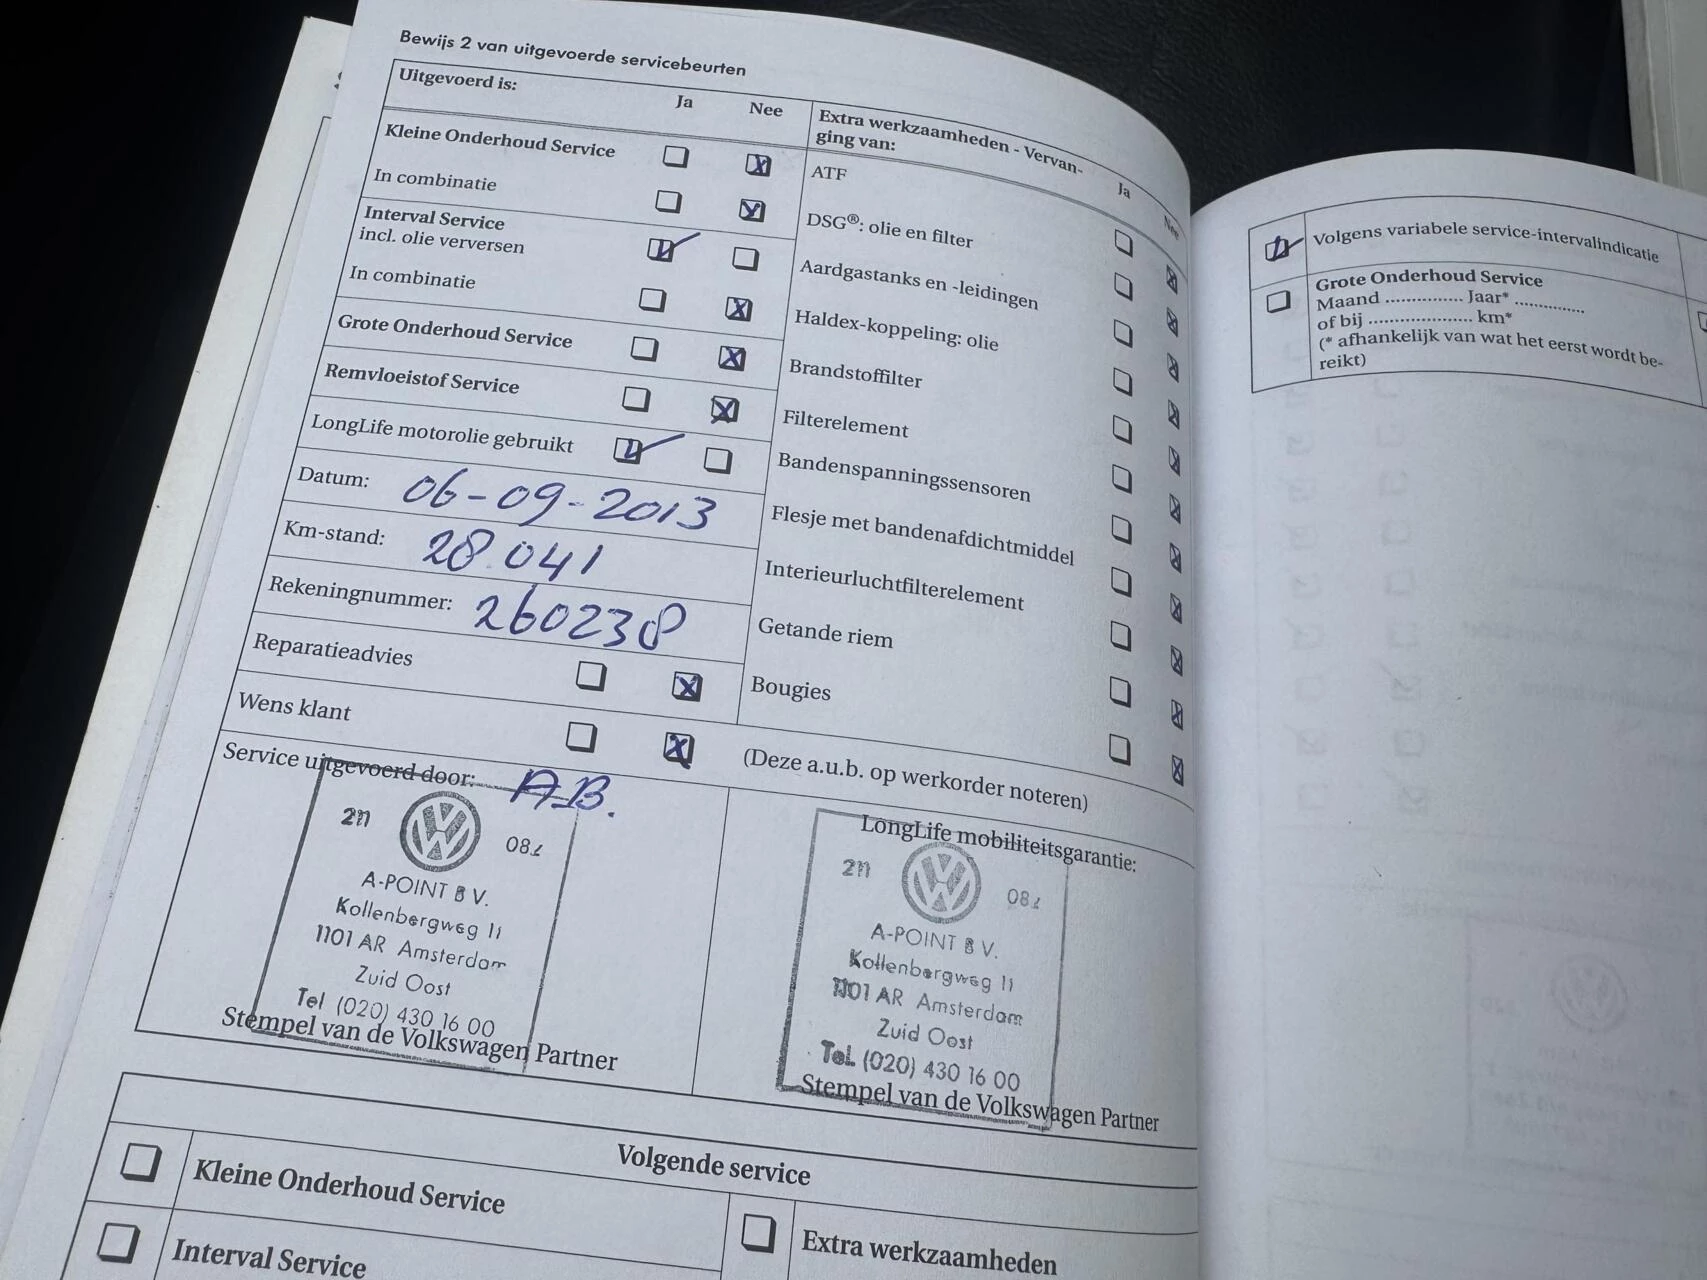 Bewijs 2 van uitgevoerde servicebeurten
Uitgevoerd is:
Ja
Nee
Kleine Onderhoud Service
In combinatie
Interval Service
incl. olie verversen
In combinatie
Grote Onderhoud Service
Remvloeistof Service
LongLife motorolie gebruikt
Datum: 06-09-2013
Km-stand: 28.041
Rekeningnummer: 260238
Reparatieadvies
Wens klant
Extra werkzaamheden - Vervan-
ging van:
Ja
Nee
ATF
DSG®: olie en filter
Aardgastanks en -leidingen
Haldex-koppeling: olie
Brandstoffilter
Filterelement
Bandenspanningssensoren
Flesje met bandenafdichtmiddel
Interieurluchtfilterelement
Getande riem
Bougies
(Deze a.u.b. op werkorder noteren)
Service uitgevoerd door: A.B.
A-POINT B V.
Kollenbergweg 11
1101 AR Amsterdam
Zuid Oost
Tel (020) 430 16 00
Stempel van de Volkswagen Partner
LongLife mobiliteitsgarantie:
A-POINT B V.
Kollenbergweg 11
1101 AR Amsterdam
Zuid Oost
Tel. (020) 430 16 00
Stempel van de Volkswagen Partner
Volgende service
Kleine Onderhoud Service
Interval Service
Extra werkzaamheden
Volgens variabele service-intervalindicatie
Grote Onderhoud Service
Maand ............... Jaar* ..............
of bij .................... km*
(* afhankelijk van wat het eerst wordt be-
reikt)